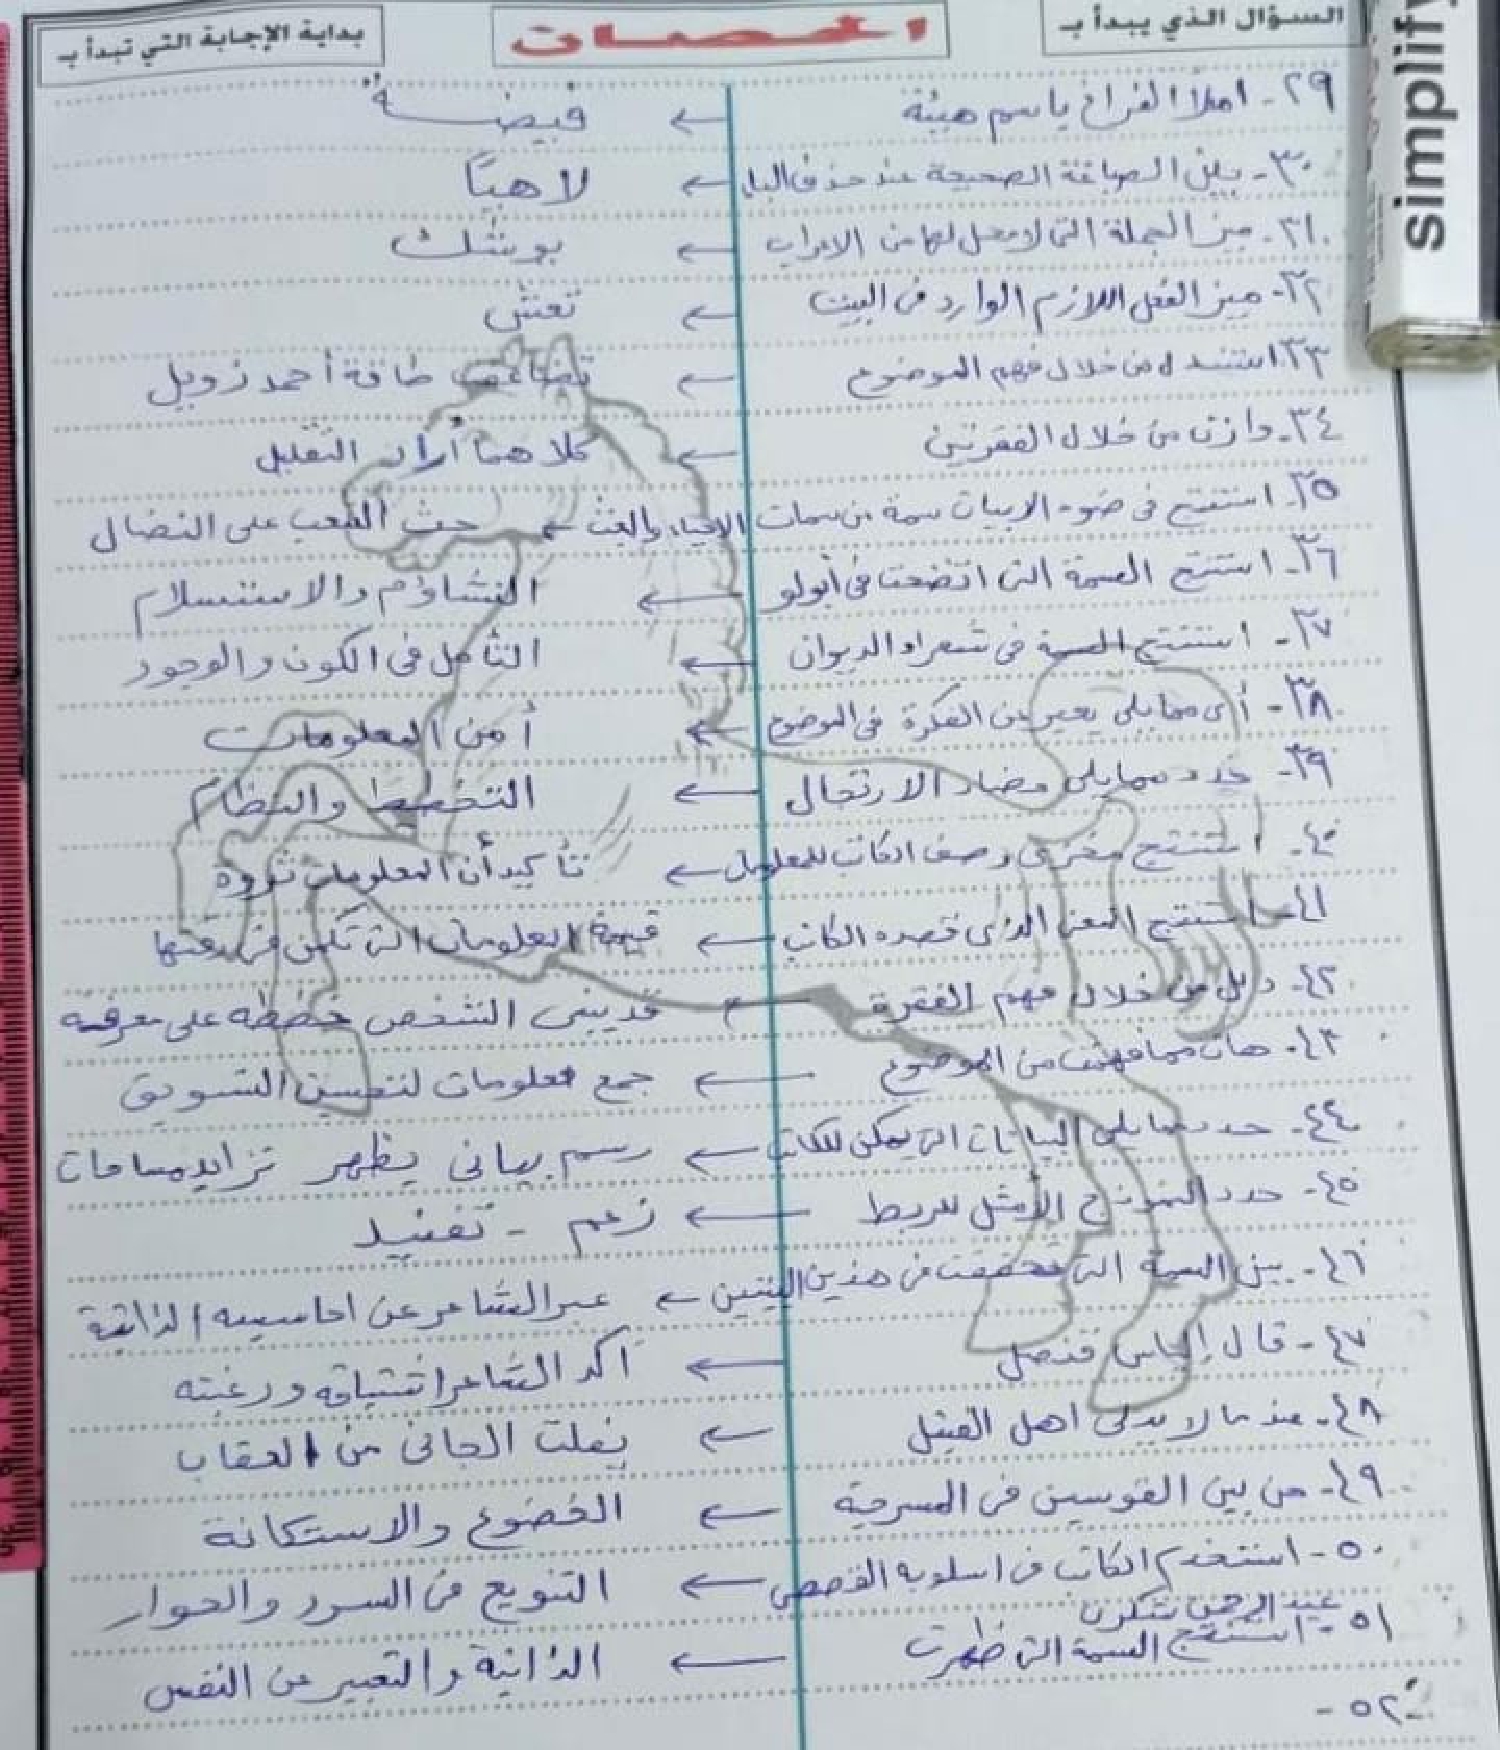 السؤال الذي يبدأ بـ
الحصان
بداية الإجابة التي تبدأ بـ
simplify
٢٩- املأ الفراغ باسم هيئة ← قبضة
٣٠- بين الصياغة الصحيحة عند حذف الباء ← لاهيًا
٣١- ميز الجملة التي لا محل لها من الاعراب ← يوشك
٣٢- ميز الفعل اللازم الوارد في البيت ← تعش
٣٣- استدل من خلال فهم الموضوع ← طاقة أحمد زويل
٣٤- وازن من خلال الفقرتين ← كلاهما أراد التقليل
٣٥- استنتج في ضوء الابيات سمة من سمات الاحياء والبعث ← حث الشعب على النضال
٣٦- استنتج السمة التي اتضحت في أبولو ← التشاؤم والاستسلام
٣٧- استنتج السمة في شعراء الديوان ← التأمل في الكون والوجود
٣٨- أي مما يلي يعبر عن الفكرة في الموضوع ← أمن المعلومات
٣٩- حدد مما يلي مضاد الارتجال ← التخطيط والنظام
٤٠- استنتج مغزى وصف الكاتب للمعلومات ← تأكيد أن المعلومات ثروه
٤١- استنتج المعنى الذي قصده الكاتب ← قيمة المعلومات التي تكمن في دقتها
٤٢- دلل من خلال فهم الفقرة ← قد يبني الشخص خططه على معرفته
٤٣- هات مما فهمت من الموضوع ← جمع معلومات لتحسين التسويق
٤٤- حدد مما يلي البيانات التي يمكن للكاتب ← رسم بياني يظهر تزايد مساحات
٤٥- حدد النموذج الأمثل للربط ← زعم - تفنيد
٤٦- بين السمة التي تحققت في هذين البيتين ← عبر الشاعر عن احاسيسه الذاتية
٤٧- قال إلياس قنصل ← أكد الشاعر اشتياقه ورغبته
٤٨- عندما لا يدلي اهل القتيل ← يفلت الجاني من العقاب
٤٩- من بين القوسين في المسرحية ← الخضوع والاستكانة
٥٠- استخدم الكاتب في اسلوبه القصصي ← التنويع في السرد والحوار
عبد الرحمن شكري
٥١- استنتج السمة التي ظهرت ← الذاتية والتعبير عن النفس
٥٢-